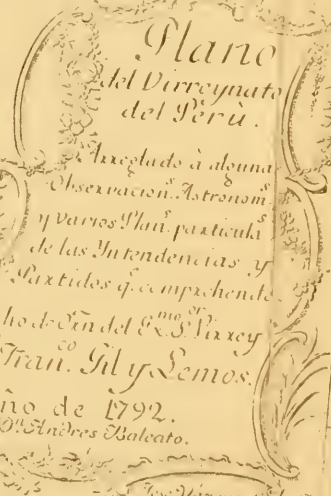 Plano
del Virreynato
del Perù.
Arreglado à alguna
Observacion.s Astronom.s
y varios Plan.s particula.s
de las Yntendencias y
Partidos q.e comprehende.
ho de Orn del Ex.mo S.or Virrey
Fran.co Gil y Lemos.
ño de 1792.
D.n Andres Baleato.